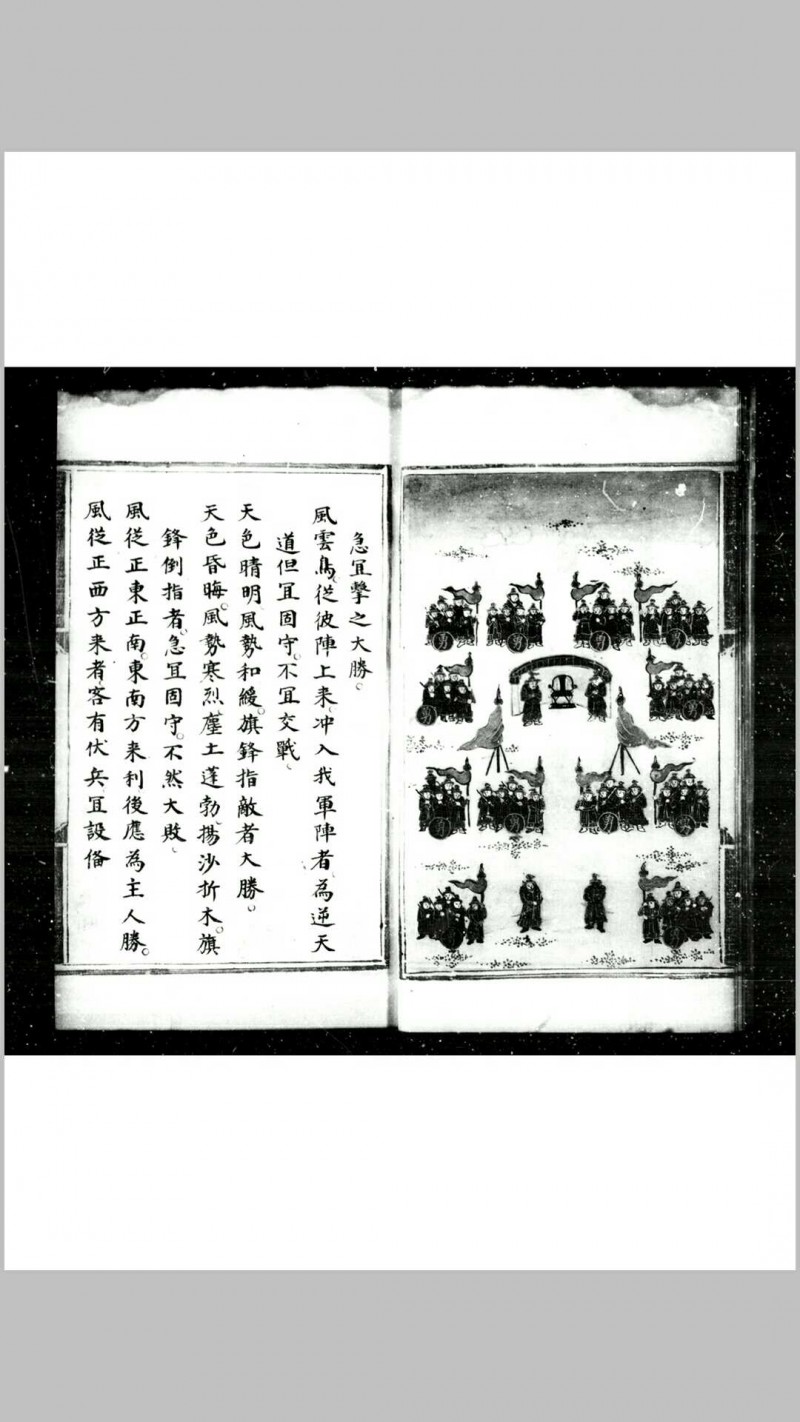 急宜擊之大勝。
風雲鳥從彼陣上來、冲入我軍陣者、為逆天
道但宜固守。不宜交戰、
天色晴明風勢和緩。旗鋒指敵者大勝。
天色昏晦。風勢寒烈塵土蓬勃揚沙折木。旗
鋒倒指者。急宜固守。不然大敗、
風從正東正南。東南方来利後應為主人勝。
風從正西方来者客有伏兵。宜設俻
勇
勇
勇
勇
勇
勇
勇
勇
勇
勇
勇
勇